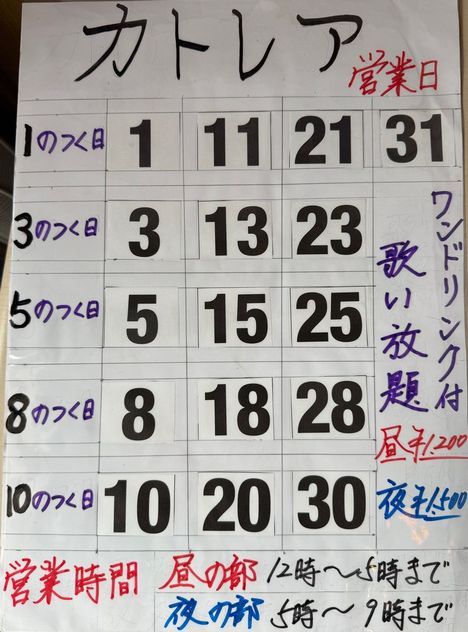 カトレア
営業日
1のつく日 1 11 21 31
3のつく日 3 13 23
5のつく日 5 15 25
8のつく日 8 18 28
10のつく日 10 20 30
ワンドリンク付
歌い放題
昼¥1,200
夜¥1,500
営業時間 昼の部 12時〜5時まで
夜の部 5時〜9時まで